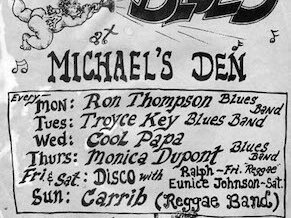 BLUES
at
MICHAEL'S DEN
Every
MON: Ron Thompson Blues Band
Tues: Troyce Key Blues Band
Wed: Cool Papa
Thurs: Monica Dupont Blues Band
Fri & Sat: Disco with Ralph - Fri. Reggae
Eunice Johnson - Sat.
Sun: Carrib (Reggae Band)